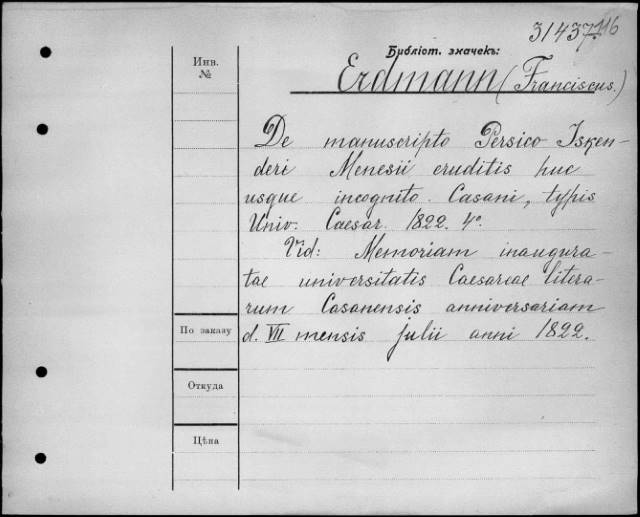 31437116
Библіот. значекъ:
Инв.
№
Erdmann (Franciscus.)
De manuscripto Persico Isken-
deri Menesii eruditis huc
usque incognito. Casani, typis
Univ. Caesar. 1822. 4°.
Vid: Memoriam inaugura-
tae universitatis Caesareae litera-
rum Casanensis anniversariam
d. VII mensis julii anni 1822.
По заказу
Откуда
Цѣна